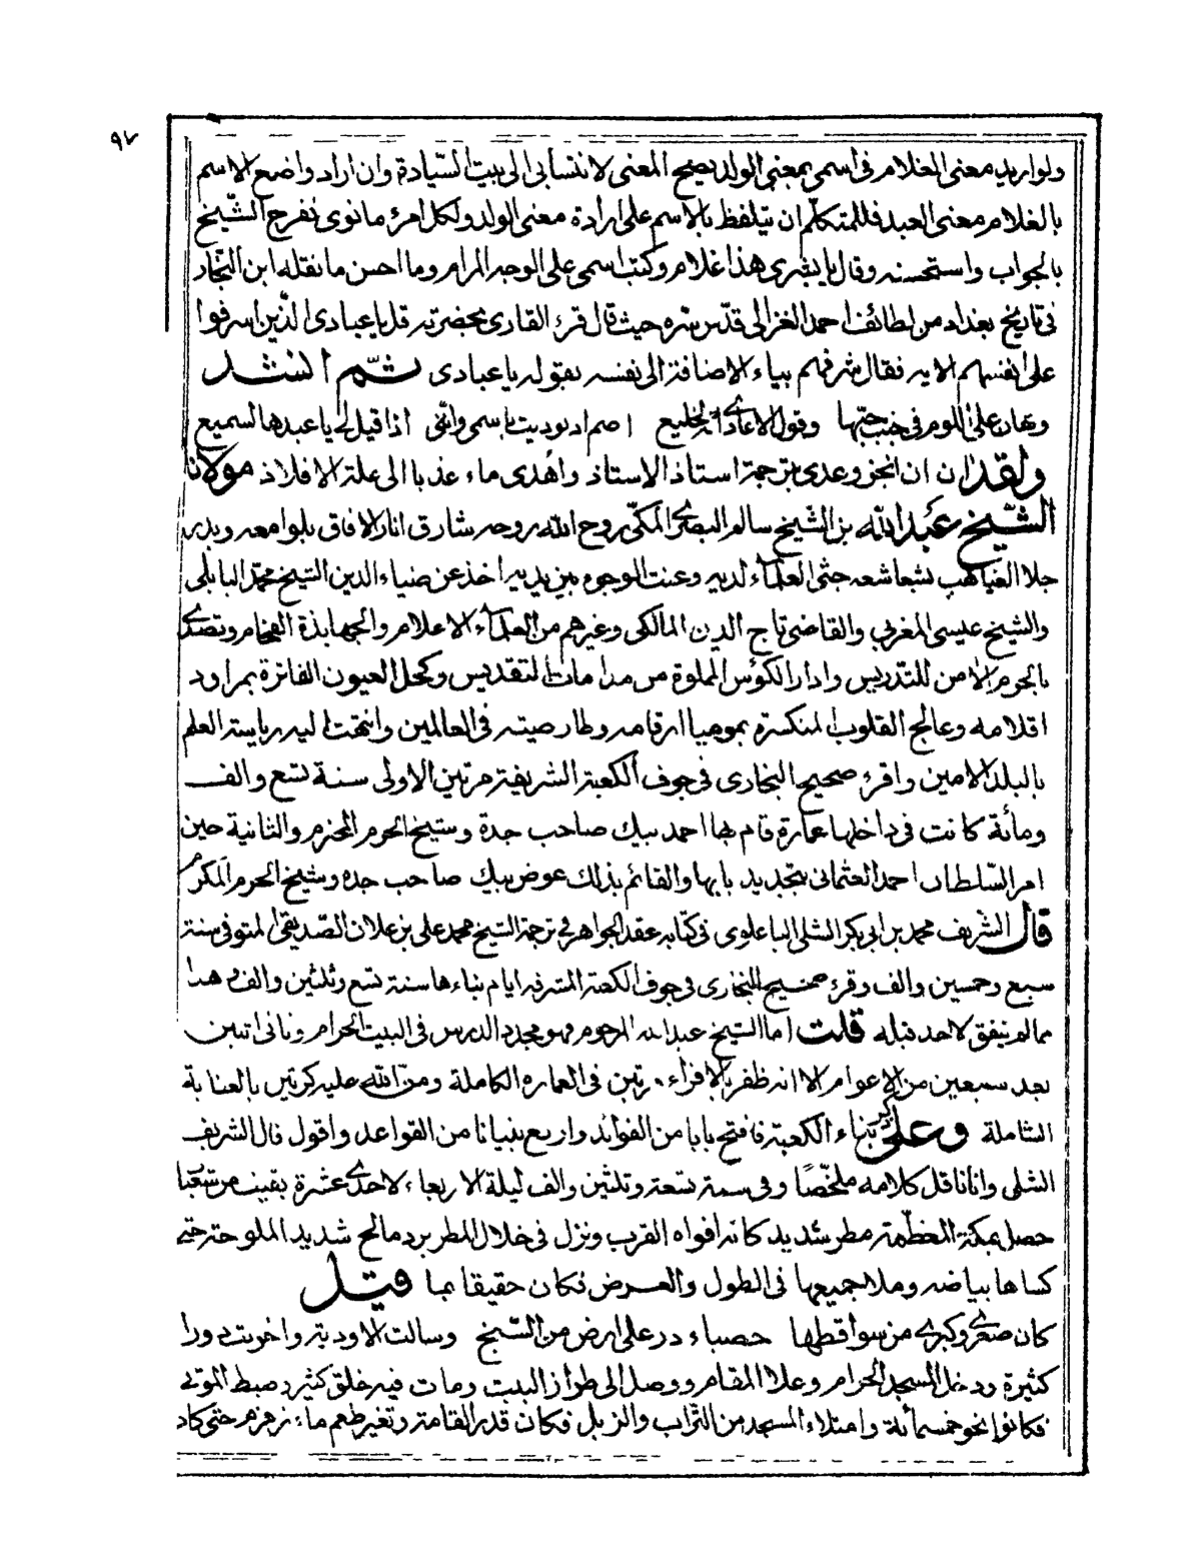 ٩٧
ولو اريد معنى الغلام فى اسمى بمعنى الولد يصح المعنى لانتسابى الى بيت السّيادة وان اراد واضع الاسم
بالغلام معنى العبد فللمتكلّم ان يتلفظ بالاسم على ارادة معنى الولد ولكل امرئ ما نوى نفرح الشّيخ
بالجواب واستحسنه وقال يا بشرى هذا غلام وكتب اسمى على الوجه المرام وما احسن ما نقله ابن النّجار
فى تاريخ بغداد من لطائف احمد الغزالى قدّس سره حيث قال قرئ القارى بحضرته قل يا عبادى الّذين اسرفوا
على انفسهم الايه فقال شرفهم بياء الاضافة الى نفسه بقوله يا عبادى ثمّ انشد
وهان علىّ اللوم فى جنب حبّها وقول الاعادى انه لخليع اصم اذ نوديت باسمى واننى اذا قيل لى يا عبدها لسميع
ولقد ان ان انجز وعدى بترجمة استاذ الاستاذ واهدى ماء عذبا الى علة الافلاذ مولانا
الشّيخ عبد الله بن الشّيخ سالم البصرى المكّى روح الله روحه شارق انار الافاق بلوامعه وبدر
جلا الغياهب بشعاشعه جثى العلماء لديه وعنت الوجوه بين يديه اخذ عن ضياء الدين الشيخ محمّد البابلى
والشيخ عيسى المغربى والقاضى تاج الدين المالكى وغيرهم من العلماء الاعلام والجهابذة الفخام وتصدّى
بالحرم الامن للتدريس وادار الكؤس المملوة من مدامات التقديس وكحل العيون الفاترة بمراود
اقلامه وعالج القلوب المنكسرة بموميا ارقامه وطار صيته فى العالمين وانتهت اليه رياسة العلم
بالبلد الامين واقرئ صحيح البخارى فى جوف الكعبة الشريفة مرتين الاولى سنة تسع والف
ومائة كانت فى داخلها عمارة قام بها احمد بيك صاحب جدة وشيخ الحرم المحترم والثانية حين
امر السّلطان احمد العثمانى بتجديد بابها والقائم بذلك عوض بيك صاحب جده وشيخ الحرم المكرم
قال الشريف محمد بن ابى بكر الشلى الباعلوى فى كتابه عقد الجواهر فى ترجمة الشيخ محمد على بن علان الصّديقى المتوفى سنة
سبع وخمسين والف وقرئ صحيح البخارى فى جوف الكعبة المشرفه ايام بناءها سنة تسع وثلثين والف وهذا
مما لم يتفق لاحد قبله قلت اما الشيخ عبد الله المرحوم فهو مجدد الدرس فى البيت الحرام وثانى اثنين
بعد سبعين من الاعوام الا انه ظفر بالاقراء مرتين فى العماره الكاملة ومن الله عليه كرتين بالعناية
الشاملة وعلى ذكر بناء الكعبة فافتح بابا من الفوائد وارفع بنيانا من القواعد واقول قال الشريف
الشلى وانا ناقل كلامه ملخّصًا وفى سنة تسعة وثلثين والف ليلة الاربعاء لاحدى عشرة بقيت من شعبان
حصل بمكة المعظّمة مطر شديد كانه افواه القرب ونزل فى خلال المطر برد مالح شديد الملوحة حتى
كساها بياضه وملا جميعها فى الطول والعرض فكان حقيقا بما قيل
كان صغرى وكبرى من سواقطها حصباء در على ارض من الشيخ وسالت الاودية واخربت دورا
كثيرة ودخل المسجد الحرام وعلا المقام ووصل الى طراز البيت ومات فيه خلق كثير وضبط الموتى
فكانوا نحو خمسمائة وامتلاء المسجد من التّراب والزبل فكان قدر القامة وتغير طعم ماء زمزم حتى كاد